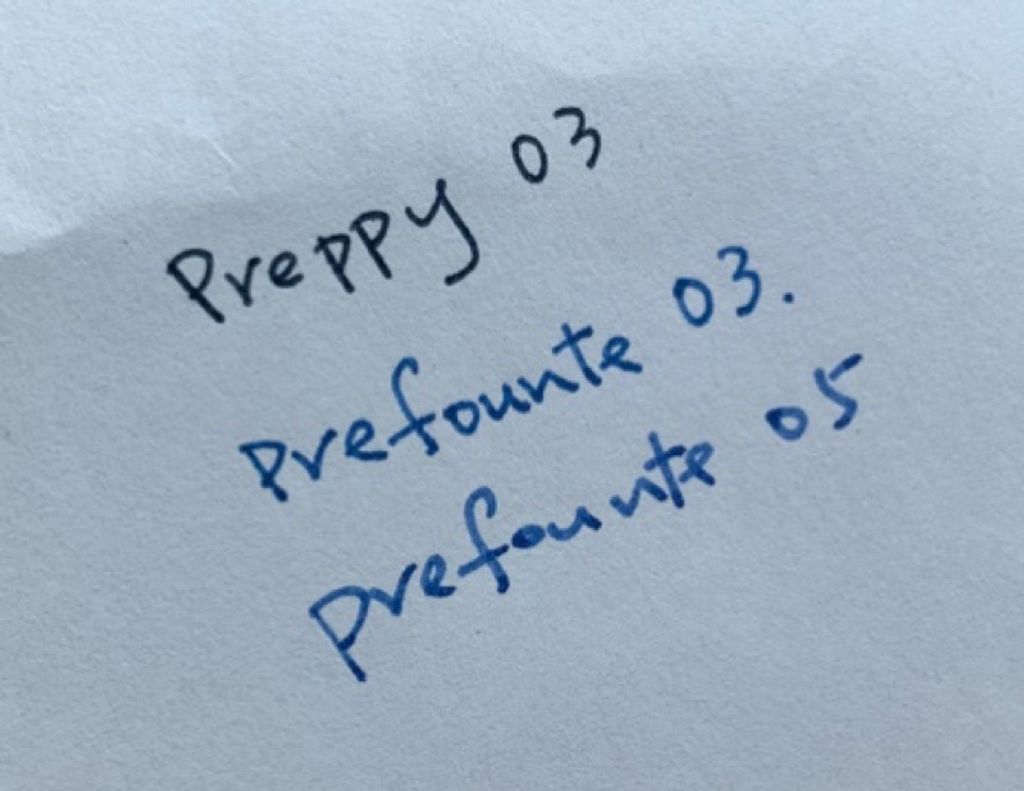 Preppy 03
prefounte 03.
prefounte 05